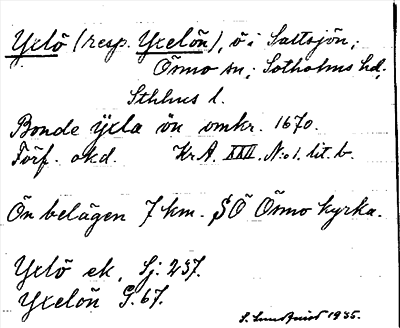 Yxlö (resp. Yxelön), ö i Saltsjön;
Ösmo sn; Sotholms hd,
Sthlms l.
Bonde yxla ön omkr. 1670.
Förf. okd. KrA. XXII. N:o 1. lit. b.
Ön belägen 7 km. SÖ Ösmo kyrka.
Yxlö ek. Sj. 237.
Yxelön G. 67.
S. Lundqvist 1935.